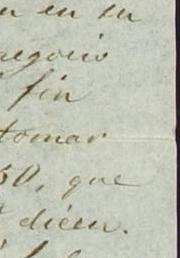 en su
negocio
fin
tomar
50, que
dicen.